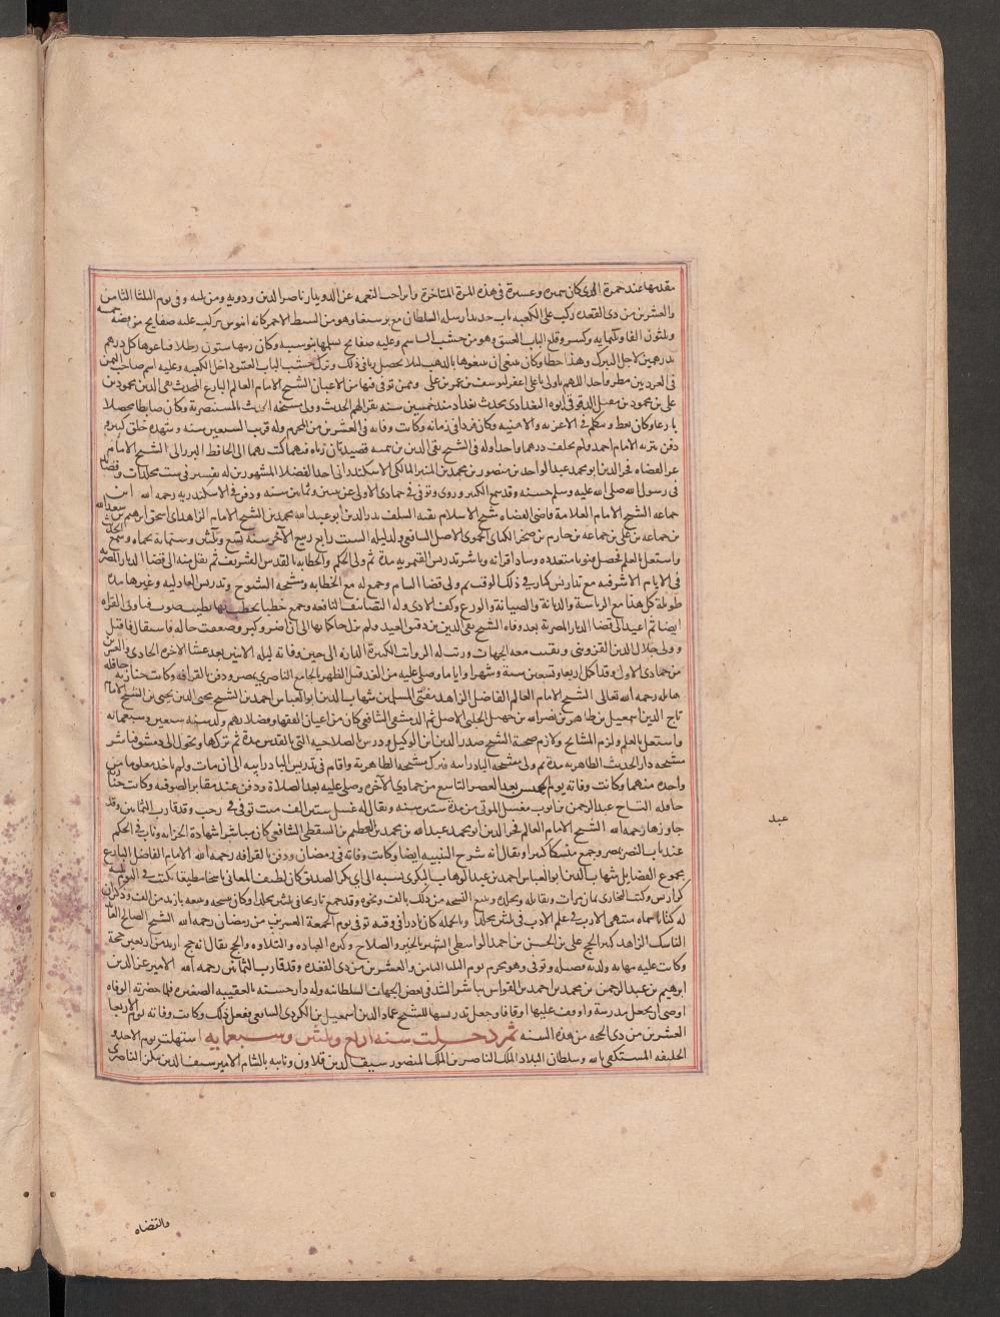 مقدمها عند حمرة الحدى كان حميره وعسيرة فى هذه المرة المتاخرة وابراجب النعجمه عز الدويدار ناصر الدين ودويه ومن لمسه وفى يوم الثلثا الثامن
والعشرين من ذى القعده ركب على الكعبه باب حديد ارسله السلطان مع برسبغا وهو من السنط الاحمر كانه ابنوس مركب عليه صفايح من فضه خمسه
وثلثون الفا وثلثمايه وكسر وقلع الباب العتيق وهو من خشب الساسم وعليه صفايح تسلمها بنو شيبه وكان زنتها ستون رطلا فباعوها كل درهم
بدرهمين لاجل التبرك وهذا خطا وكان ينبغى ان يبيعوها بالذهب لئلا يحصل ربا فى ذلك وترك خشب الباب العتيق داخل الكعبه وعليه اسم صاحب اليمن
فى الفردتين مطرو احد اللهم ياولى يا على اغفر ليوسف بن عمر بن على وممن توفى فيها من الاعيان الشيخ الامام العالم البارع المحدث تقى الدين محمود بن
على بن محمود بن مقبل الدقوقى ابوه البغدادى محدث بغداد منذ خمسين سنه يقرا لهم الحديث وولى مشيخة الحديث بالمستنصرية وكان ضابطا محصلا
بارعا وكان يعظ ويتكلم فى الاعزيه والاهنيه وكان فردا فى زمانه وكانت وفاته فى العشرين من المحرم وله قريب السبعين سنه وشهده خلق كثيره
دفن بتربه الامام احمد ولم يخلف درهما واحدا وله فى الشيخ تقى الدين بن تيميه قصيدتان رثاه فيهما كتب بهما الى الحافظ البرزالى الشيخ الامام
عز القضاه فخر الدين ابو محمد عبد الواحد بن منصور بن محمد بن المنير المالكى الاسكندرانى احد الفضلا المشهورين له تفسير فى ست مجلدات وقصايد
فى رسول الله صلى الله عليه وسلم حسنه وقد سمع الكثير وروى وتوفى فى جمادى الاولى عن ستين وثمانين سنه ودفن فى الاسكندريه رحمه الله ابن
جماعه الشيخ الامام العلامة قاضى القضاه شيخ الاسلام بقيه السلف بدر الدين ابو عبد الله محمد بن الشيخ الامام الزاهد ابى اسحق ابرهيم بن سعد الله
بن جماعه بن على بن جماعه بن حازم بن صخر الكنانى الحموى الاصل الشافعى ولد ليله السبت رابع ربيع الاخر سنه تسع وثلثين وستمايه بحماه وسمع الحديث
واشتغل بالعلم فحصل فنونا متعدده وساد اقرانه وباشر تدريس القيمريه مدة ثم ولى الحكم والخطابه بالقدس الشريف ثم نقل منه الى قضا الديار المصريه
فى الايام الاشرفيه مع تداريس كبار فى ذلك الوقت ثم ولى قضا الشام وجمع له مع الخطابه ومشيخه الشيوخ وتدريس العادليه وغيرها مدة
طويلة كل هذا مع الرياسة والديانة والصيانة والورع وكف الاذى وله التصانيف النافعه وجمع خطبا يخطب بها بطيب صوت فيها وفى القراه
ايضا ثم اعيد الى قضا الديار المصرية بعد وفاه الشيخ تقى الدين بن دقيق العيد ولم يزل حاكما بها الى ان اضر وكبر وضعفت حاله فاستقال فاقيل
وولى جلال الدين القزوينى وبقيت معه الجهات ورتبت له الرواتب الكثيرة الداره الى حين وفاته ليله الاثنين بعد عشا الاخره الحادى والعشرين
من جمادى الاول وقد اكمل اربعا وتسعين سنة وشهرا واياما وصلى عليه من الغد قبل الظهر بالجامع الناصرى بمصر ودفن بالقرافه وكانت جنازته حافله
هايله رحمه الله تعالى الشيخ الامام العالم الفاضل الزاهد مفتى المسلمين شهاب الدين ابو العباس احمد بن الشيخ محيى الدين يحيى بن الشيخ الامام
تاج الدين اسمعيل بن طاهر بن نصر الله بن جهبل الحلبى الاصل ثم الدمشقى الشافعى كان من اعيان الفقها وفضلاهم ولد سنه سبعين وستمائه
واشتغل بالعلم ولزم المشايخ ولازم صحبة الشيخ صدر الدين ابن الوكيل ودرس الصلاحيه التى بالقدس مدة ثم تركها وتحول الى دمشق فباشر
مشيخه دار الحديث الظاهريه مدة ثم ولى مشيخه البادرائيه فترك مشيخه الظاهرية واقام فى تدريس البادرائيه الى ان مات ولم ياخذ معلوما من
واحده منهما وكانت وفاته يوم الخميس بعد العصر التاسع من جمادى الاخره وصلى عليه بعد الصلاة ودفن عند مقابر الصوفيه وكانت جنازته
حافله التاج عبد الرحمن بن ايوب مغسل الموتى من مدة ستين سنه ويقال له غسل ستين الف ميت توفى فى رجب وقد قارب الثمانين وقد
جاوزها رحمه الله الشيخ الامام العالم فخر الدين ابو محمد عبد الله بن محمد بن العظيم بن السقطى الشافعى كان مباشرا شهادة الخزانه وناب فى الحكم
عند باب النصر بمصر وجمع منسكا كبيرا ويقال انه شرح التنبيه ايضا وكانت وفاته فى رمضان ودفن بالقرافه رحمه الله الامام الفاضل البارع
مجموع الفضايل شهاب الدين ابو العباس احمد بن عبد الوهاب البكرى نسبه الى ابى بكر الصديق كان لطيف المعانى ناسخا مطيقا يكتب فى اليوم ثلثه
كراريس وكتب البخارى ثمان مرات ويقابله ويجلده ويبيع النسخه من ذلك بالف ونحوه وقد جمع تاريخا فى ثلثين مجلدا وكان ينسخه ويبيعه بازيد من الف وذكر ان
له كتابا سماه منتهى الارب فى علم الادب فى ثلثين مجلدا وبالجمله كان نادرا فى وقته توفى يوم الجمعة العشرين من رمضان رحمه الله الشيخ الصالح العابد
الناسك الزاهد كثير الحج على بن الحسن بن احمد الواسطى الشهير بالخير والصلاح وكثره العباده والتلاوه والحج يقال انه حج ازيد من اربعين حجة
وكانت عليه مهابه ولديه فضيله وتوفى وهو محرم يوم الثلثا الثامن والعشرين من ذى القعده وقد قارب الثمانين رحمه الله الامير عز الدين
ابرهيم بن عبد الرحمن بن محمد بن احمد بن القواس باشر الشد فى بعض الجهات السلطانيه وله دار حسنه بالعقيبه الصغيره فلما حضرته الوفاه
اوصى ان تجعل مدرسة واوقف عليها اوقافا وجعل تدريسها للشيخ عماد الدين اسمعيل بن الكردى الشافعى ففعل ذلك وكانت وفاته يوم الاربعا
العشرين من ذى الحجه من هذه السنه ثم دخلت سنه اربع وثلثين وسبعمايه استهلت بيوم الاحد و
الخليفه المستكفى بالله وسلطان البلاد الملك الناصر بن الملك المنصور سيف الدين قلاون ونايبه بالشام الامير سيف الدين تنكز الناصرى
عبد
والقضاه